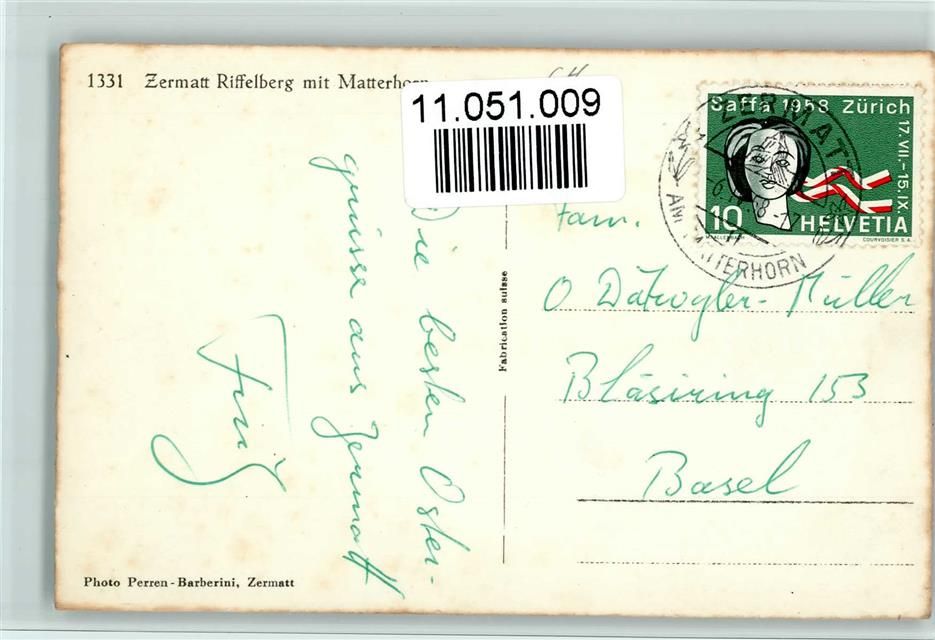 1331 Zermatt Riffelberg mit Matterhorn
11.051.009
Saffa 1958 Zürich
17. VII. - 15. IX.
10 HELVETIA
COURVOISIER S. A.
ZERMATT
AM MATTERHORN
Die besten Oster-
grüsse aus Zermatt
Fabrication suisse
Fam.
O Dätwyler-Müller
Bläsiring 153
Basel
Photo Perren-Barberini, Zermatt